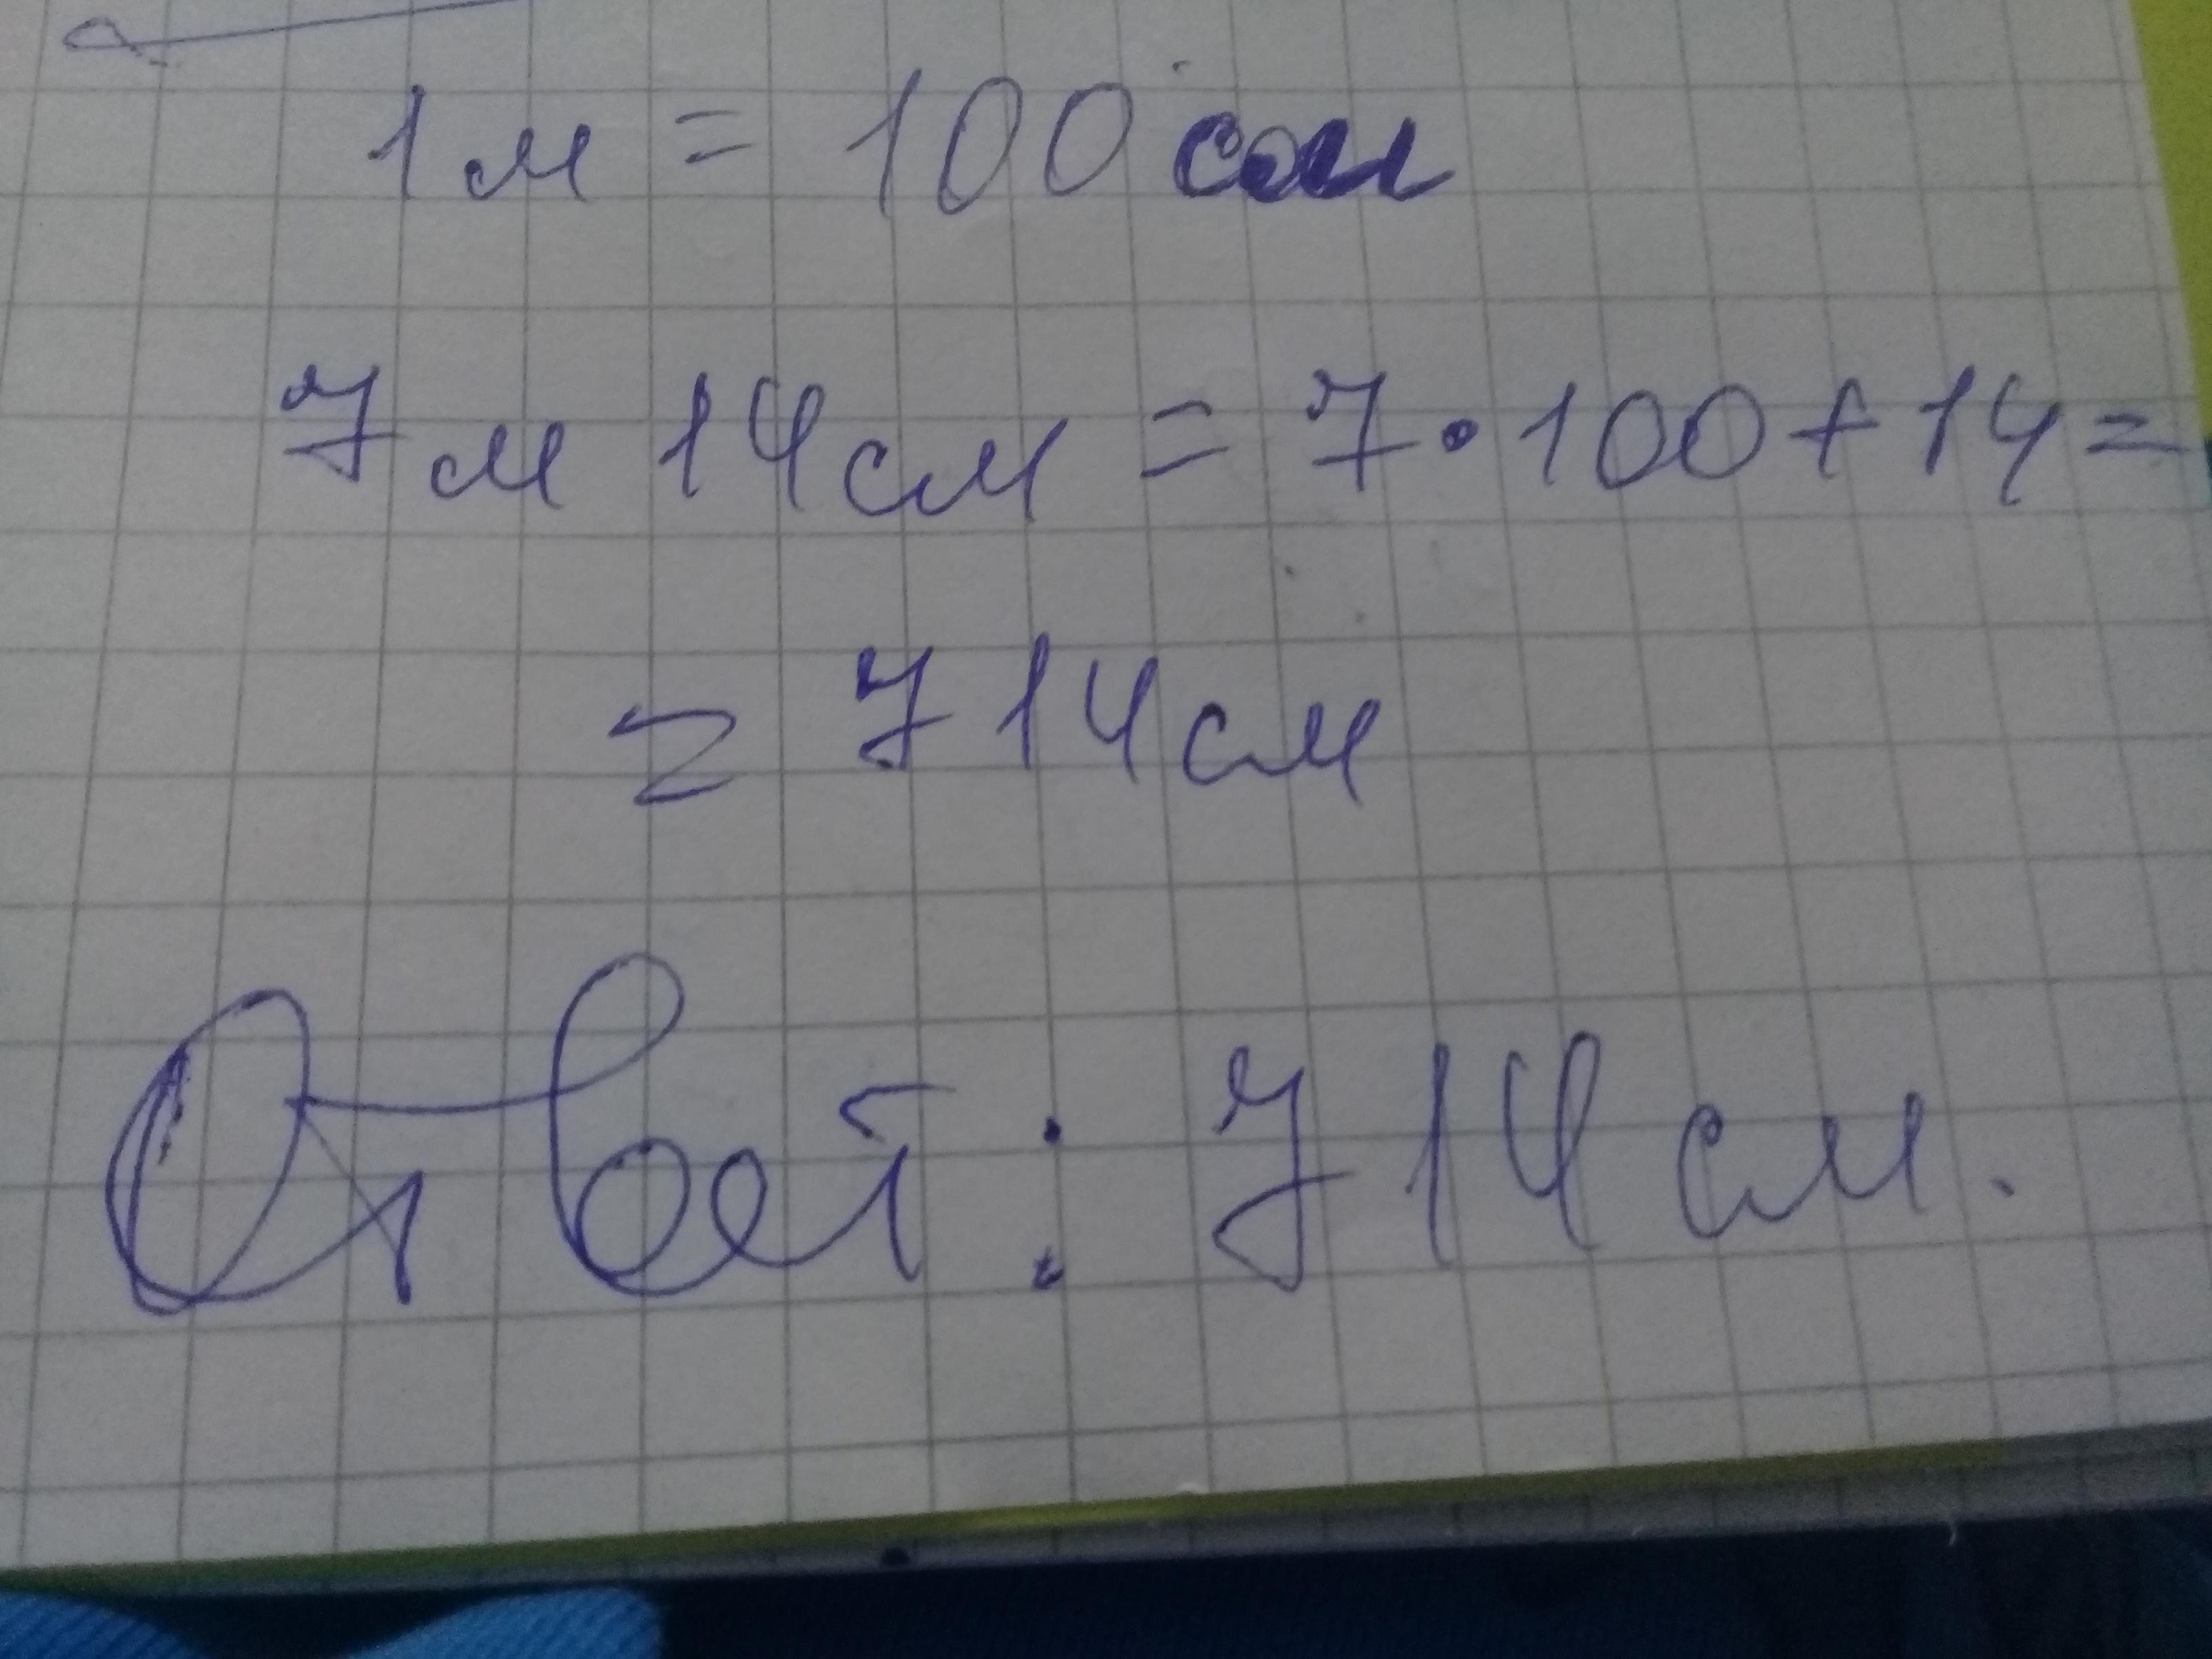 1м = 100 см
7м 14см = 7·100+14=
= 714см
Ответ: 714 см.